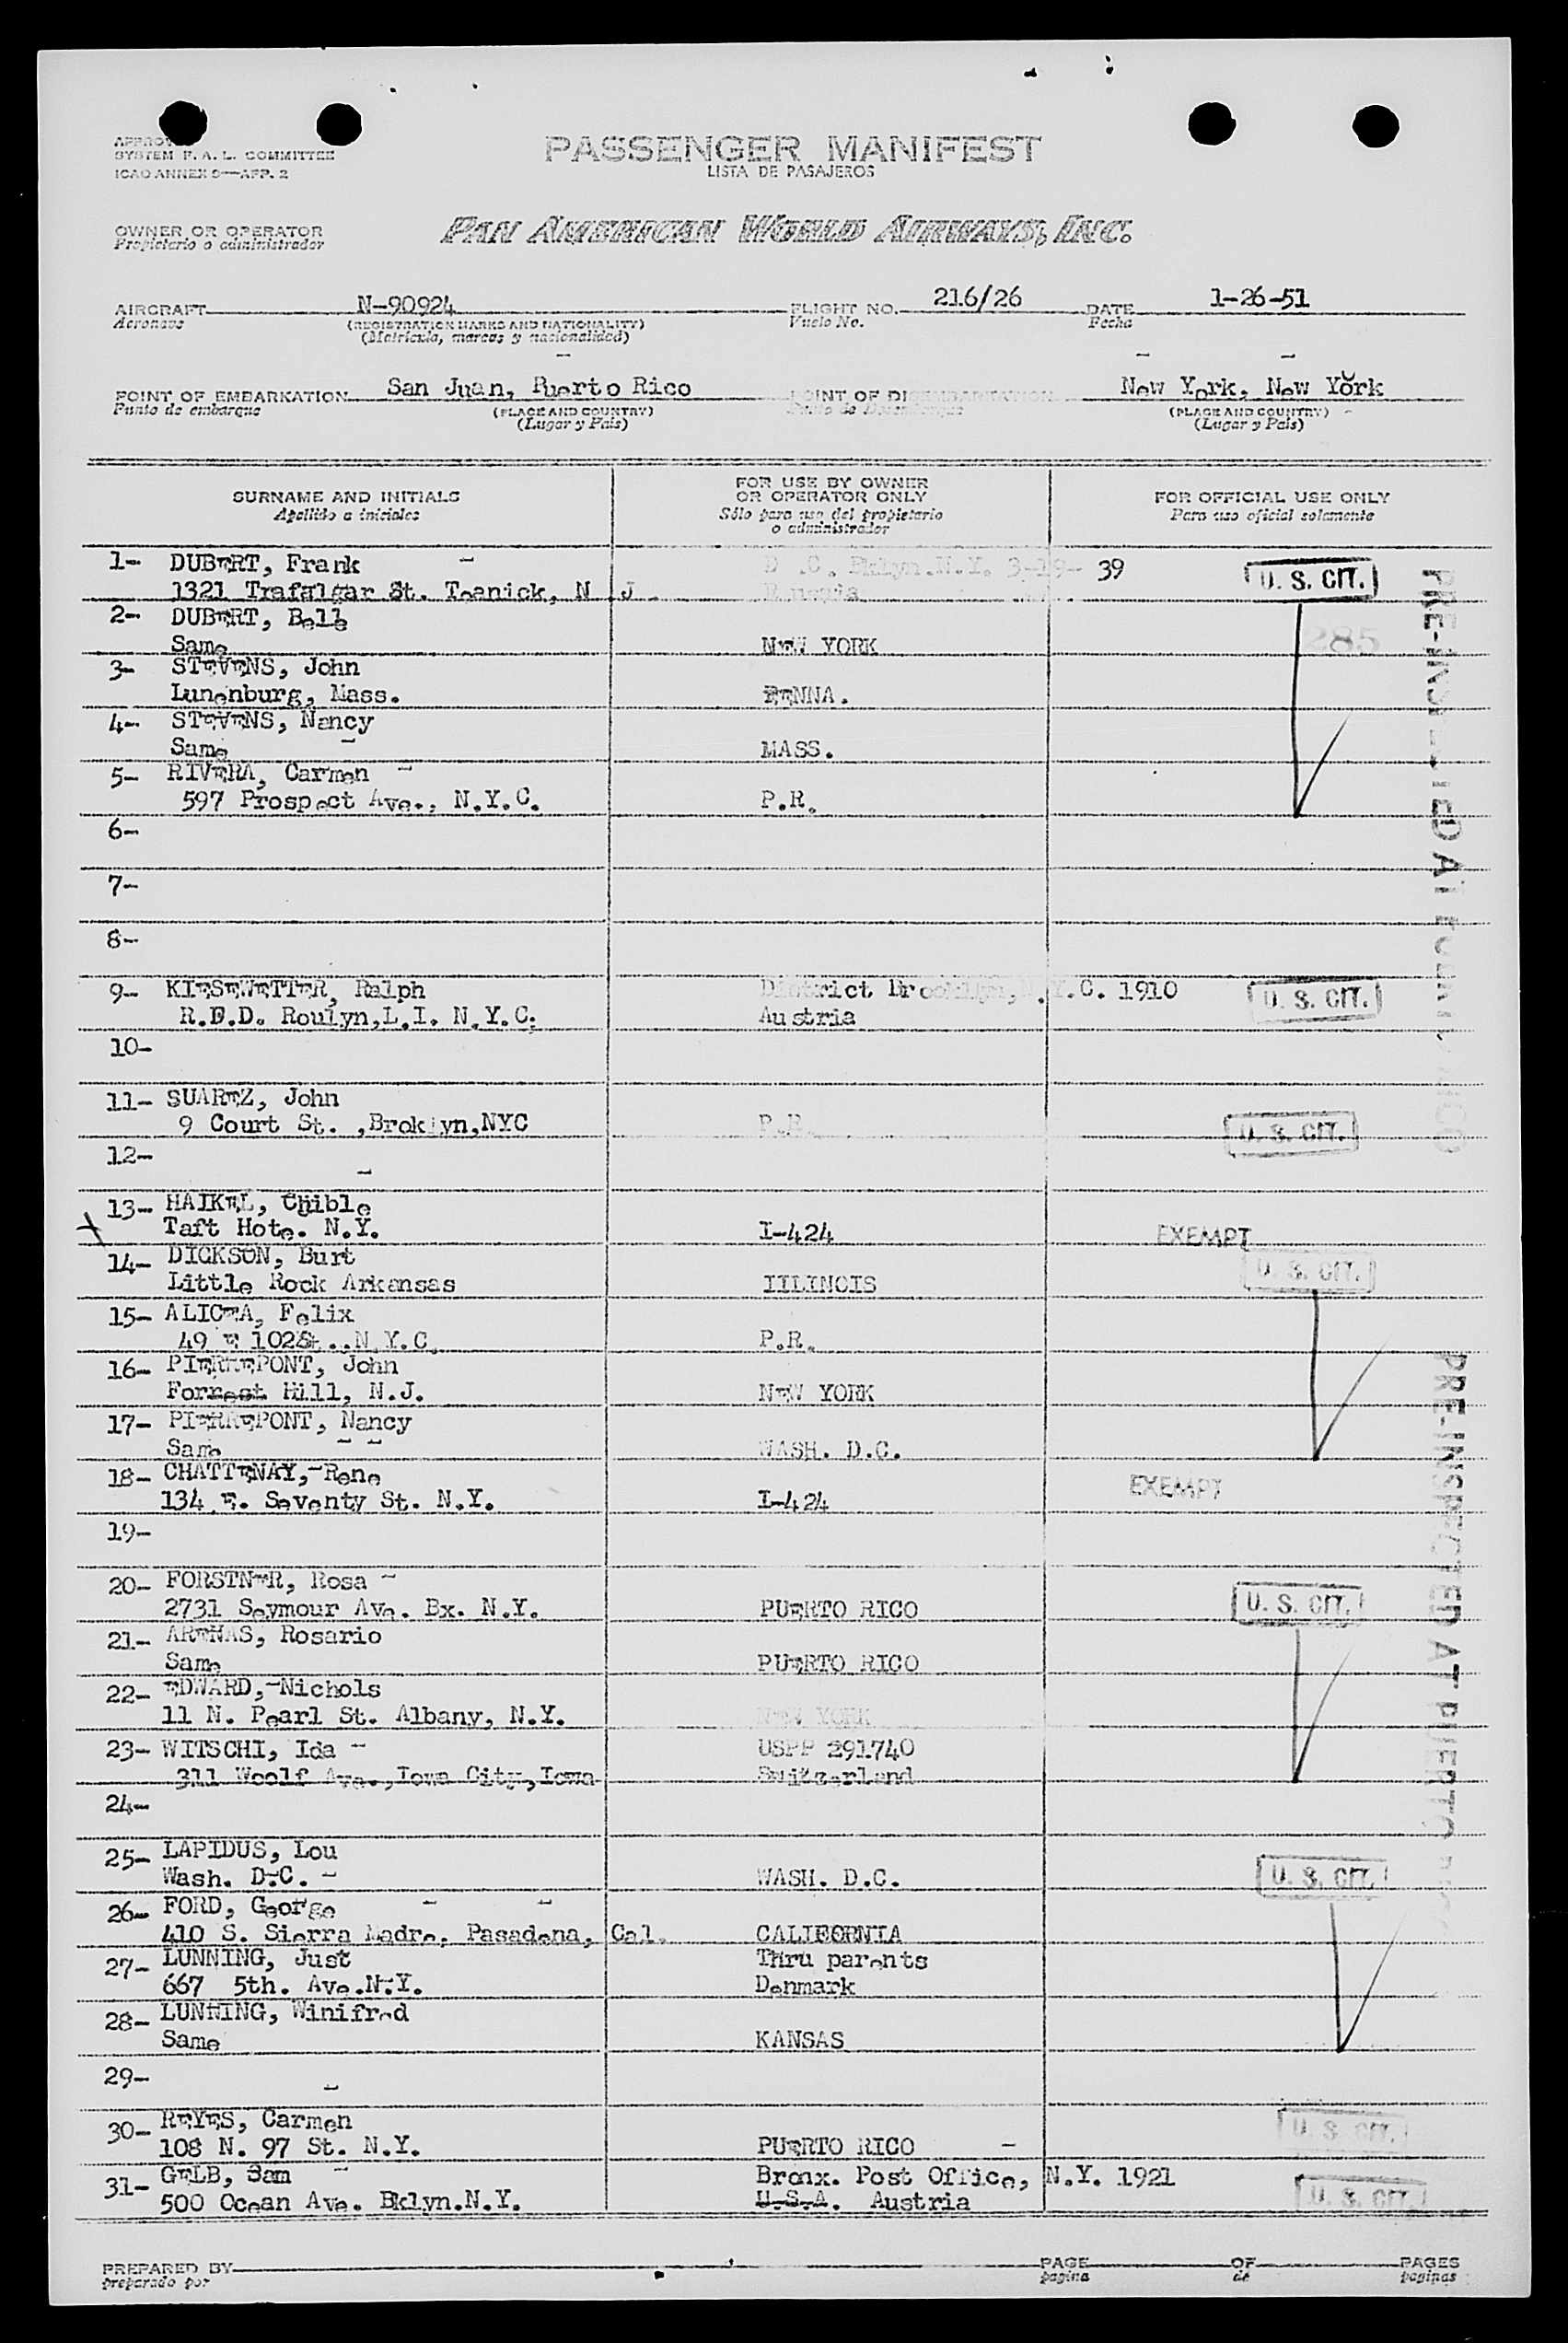 SYSTEM F. A. L. COMMITTEE
ICAO ANNEX 9—APP. 2
PASSENGER MANIFEST
LISTA DE PASAJEROS
OWNER OR OPERATOR
Propietario o administrador
PAN AMERICAN WORLD AIRWAYS, INC.
AIRCRAFT N-90924 FLIGHT NO. 216/26 DATE 1-26-51
Aeronave (REGISTRATION MARKS AND NATIONALITY) Vuelo No. Fecha
(Matricula, marcas y nacionalidad)
POINT OF EMBARKATION San Juan, Puerto Rico POINT OF DISEMBARKATION New York, New York
Punto de embarque (PLACE AND COUNTRY) (PLACE AND COUNTRY)
(Lugar y País) (Lugar y País)
SURNAME AND INITIALS
Apellido a iniciales
FOR USE BY OWNER
OR OPERATOR ONLY
Sólo para uso del propietario
o administrador
FOR OFFICIAL USE ONLY
Para uso oficial solamente
1- DUBERT, Frank D .C. Bklyn.N.Y. 3-19- 39 U. S. CIT.
1321 Trafalgar St. Teanick, N J.
2- DUBERT, Belle
Same NEW YORK 285
3- STEVENS, John
Lunenburg, Mass. PENNA.
4- STEVENS, Nancy
Same MASS.
5- RIVERA, Carmen
597 Prospect Ave., N.Y.C. P.R.
6-
7-
8-
9- KIESEWETTER, Ralph District Brooklyn, N.Y.C. 1910 U. S. CIT.
R.F.D. Roulyn,L.I. N.Y.C. Austria
10-
11- SUAREZ, John
9 Court St. ,Broklyn,NYC P.R. U. S. CIT.
12-
13- HAIKEL, Chible
Taft Hote. N.Y. I-424 EXEMPT
14- DICKSON, Burt U. S. CIT.
Little Rock Arkansas ILLINOIS
15- ALICEA, Felix
49 E 102St..N.Y.C. P.R.
16- PIERREPONT, John
Forrest Hill, N.J. NEW YORK
17- PIERREPONT, Nancy
Same WASH. D.C.
18- CHATTENAY, Rene EXEMPT
134 E. Seventy St. N.Y. I-424
19-
20- FORSTNER, Rosa
2731 Seymour Ave. Bx. N.Y. PUERTO RICO U. S. CIT.
21- ARENAS, Rosario
Same PUERTO RICO
22- EDWARD,-Nichols
11 N. Pearl St. Albany, N.Y. NEW YORK
23- WITSCHI, Ida USPP 291740
311 Woolf Ave.,Iowa City,Iowa Switzerland
24-
25- LAPIDUS, Lou
Wash. D.C. WASH. D.C. U. S. CIT.
26- FORD, George
410 S. Sierra Madre, Pasadena, Cal. CALIFORNIA
27- LUNNING, Just Thru parents
667 5th. Ave.N.Y. Denmark
28- LUNNING, Winifred
Same KANSAS
29-
30- REYES, Carmen U. S. CIT.
108 N. 97 St. N.Y. PUERTO RICO
31- GELB, Sam Bronx. Post Office, N.Y. 1921
500 Ocean Ave. Bklyn.N.Y. U.S.A. Austria U. S. CIT.
PRE-INSPECTED AT PUERTO RICO
PRE-INSPECTED AT PUERTO RICO
PREPARED BY PAGE OF PAGES
preparado por página de páginas